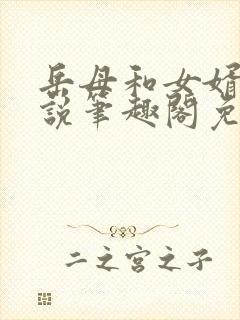 岳母和女婿
说笔趣阁免
二之宫之子